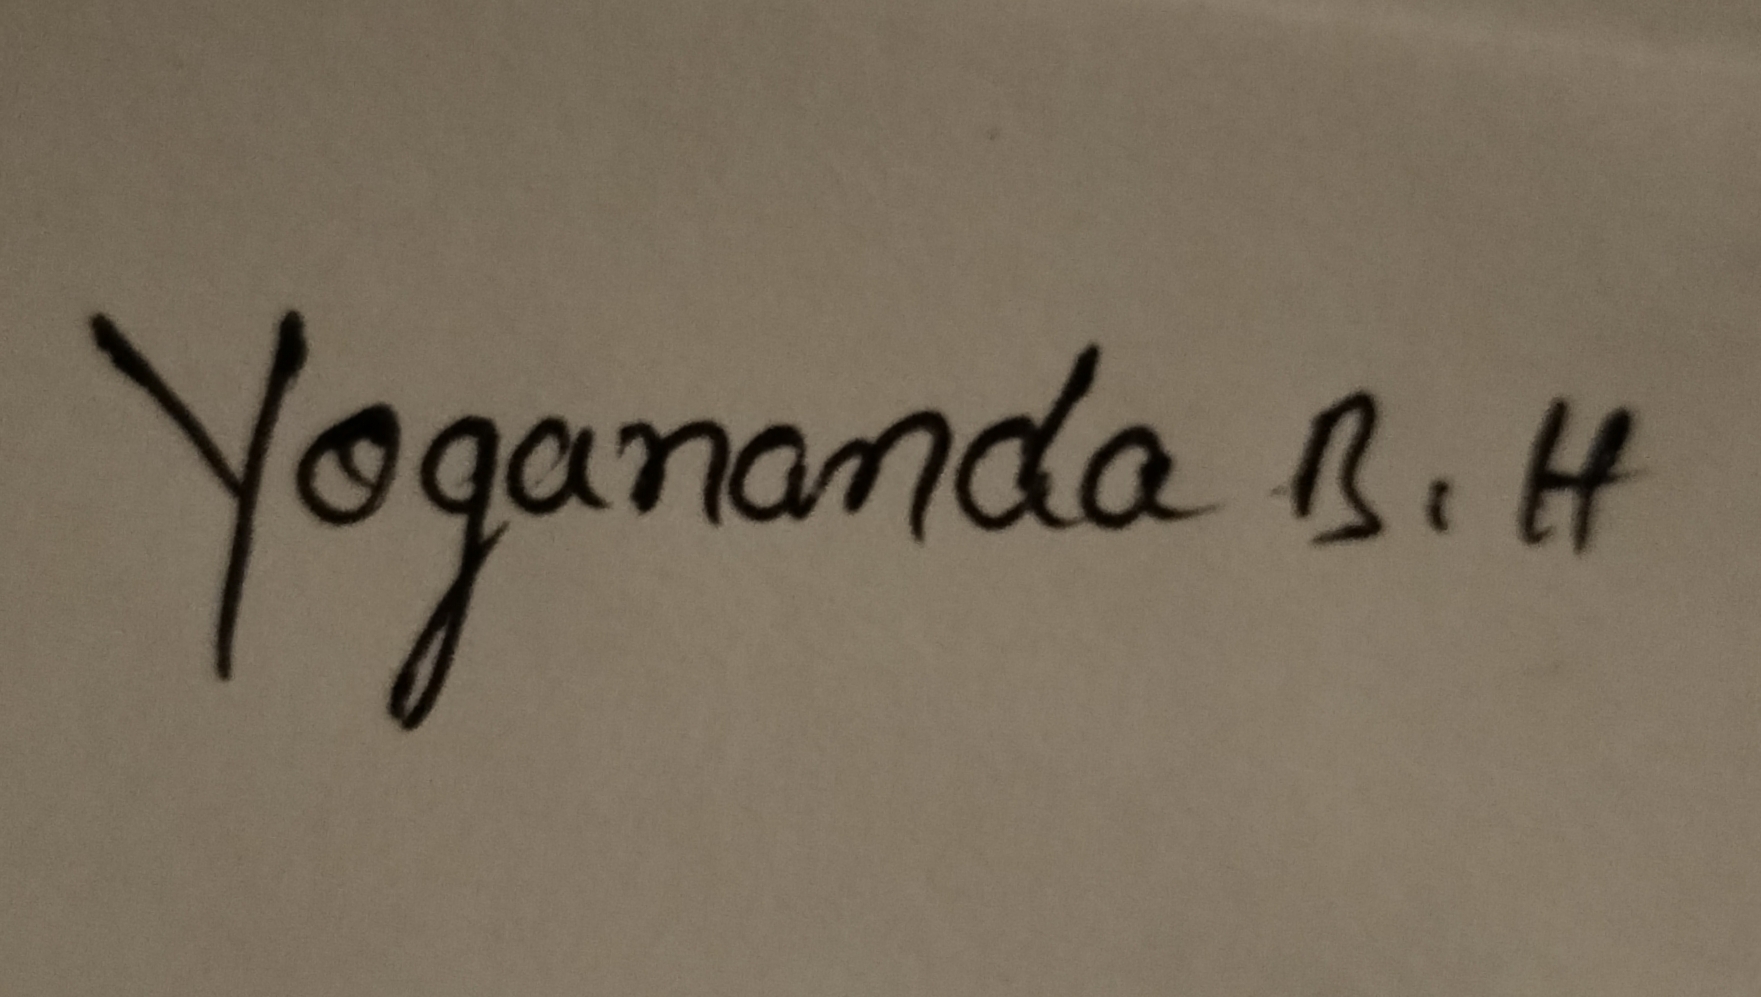 Yogananda B. H